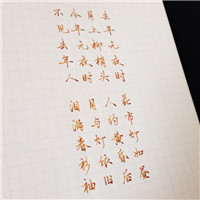 去年元夜时
花市灯如昼
月上柳梢头
人约黄昏后
今年元夜时
月与灯依旧
不见去年人
泪满春衫袖